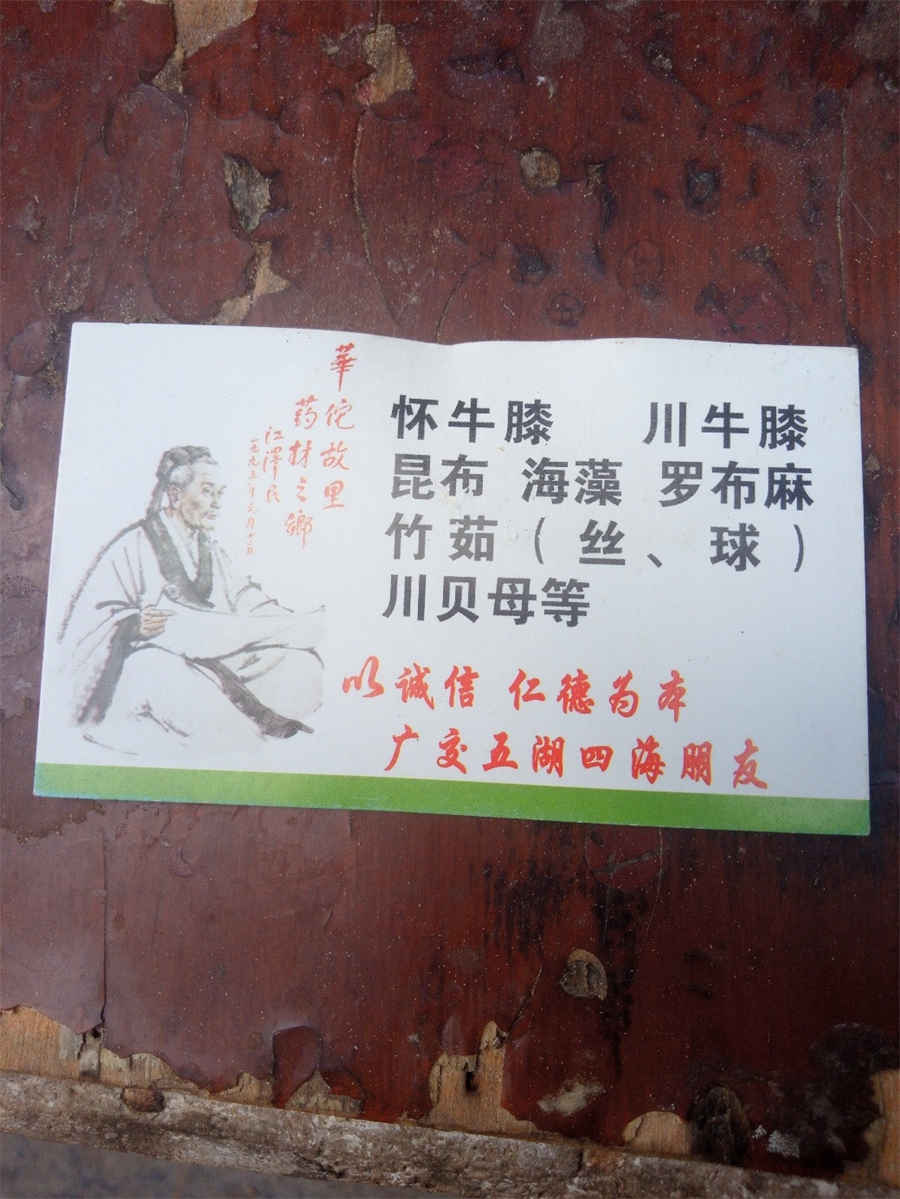 華佗故里
药材之鄉
江泽民
怀牛膝 川牛膝
昆布 海藻 罗布麻
竹茹（丝、球）
川贝母等
以诚信 仁德为本
广交五湖四海朋友